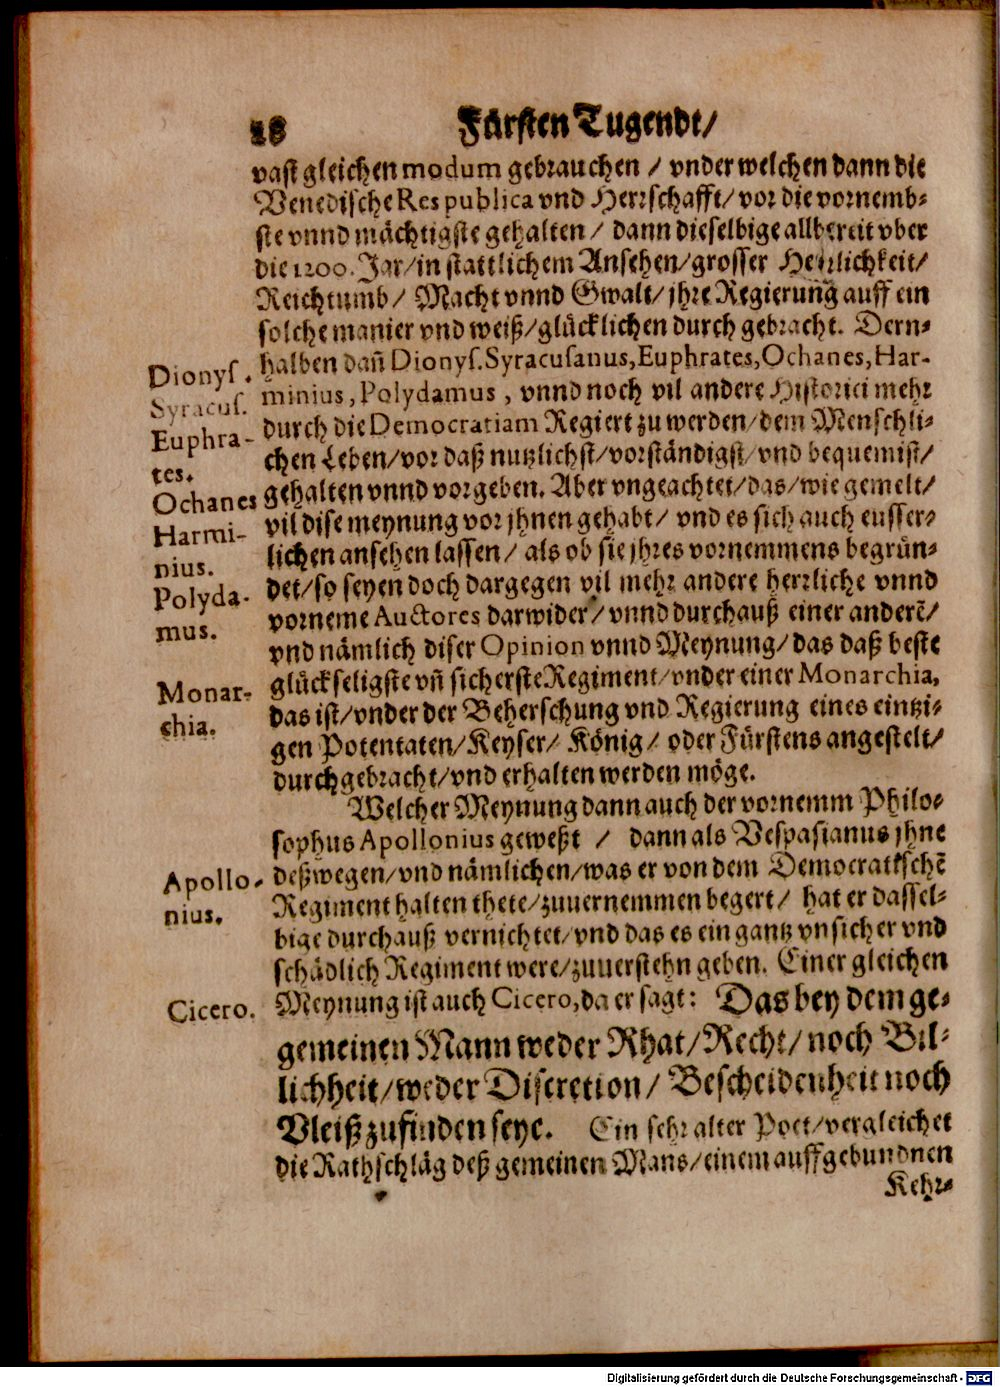 28 Fürsten Tugendt/
vast gleichen modum gebrauchen / vnder welchen dann die
Venedische Respublica vnd Herrschafft/ vor die vornemb-
ste vnnd mächtigste gehalten / dann dieselbige allbereit vber
die 1200. Jar/ in stattlichem Ansehen/ grosser Herrlichkeit/
Reichtumb/ Macht vnnd Gwalt/ jhre Regierung auff ein
solche manier vnd weiß/ glücklichen durch gebracht. Dern-
halben dañ Dionys. Syracusanus, Euphrates, Ochanes, Har-
minius, Polydamus, vnnd noch vil andere Historici mehr
durch die Democratiam Regiert zu werden/ dem Menschli-
chen Leben/ vor daß nutzlichst/ vorständigst/ vnd bequemist/
gehalten vnnd vorgeben. Aber vngeachtet/ das/ wie gemelt/
vil dise meynung vor jhnen gehabt/ vnd es sich auch eusser-
lichen ansehen lassen/ als ob sie jhres vornemmens begrün-
det/ so seyen doch dargegen vil mehr andere herrliche vnnd
vorneme Auctores darwider/ vnnd durchauß einer anderẽ/
vnd nämlich diser Opinion vnnd Meynung/ das daß beste
glückseligste vñ sicherste Regiment/ vnder einer Monarchia,
das ist/ vnder der Beherschung vnd Regierung eines eintzi-
gen Potentaten/ Keyser/ König/ oder Fürstens angestelt/
durchgebracht/ vnd erhalten werden möge.
Welcher Meynung dann auch der vornemm Philo-
sophus Apollonius geweßt / dann als Vespasianus jhne
deßwegen/ vnd nämlichen/ was er von dem Democratischẽ
Regiment halten thete/ zuuernemmen begert/ hat er dassel-
bige durchauß vernichtet/ vnd das es ein gantz vnsicher vnd
schädlich Regiment were/ zuuerstehn geben. Einer gleichen
Meynung ist auch Cicero, da er sagt: Das bey dem ge-
gemeinen Mann weder Rhat/ Recht/ noch Bil-
lichheit/ weder Discretion/ Bescheidenheit noch
Vleiß zufinden seye. Ein sehr alter Poet/ vergleichet
die Rathschläg deß gemeinen Mans/ einem auffgebundnen
Kehr-
Dionys.
Syracus.
Euphra-
tes.
Ochanes
Harmi-
nius.
Polyda-
mus.
Monar-
chia.
Apollo-
nius.
Cicero.
Digitalisierung gefördert durch die Deutsche Forschungsgemeinschaft - DFG